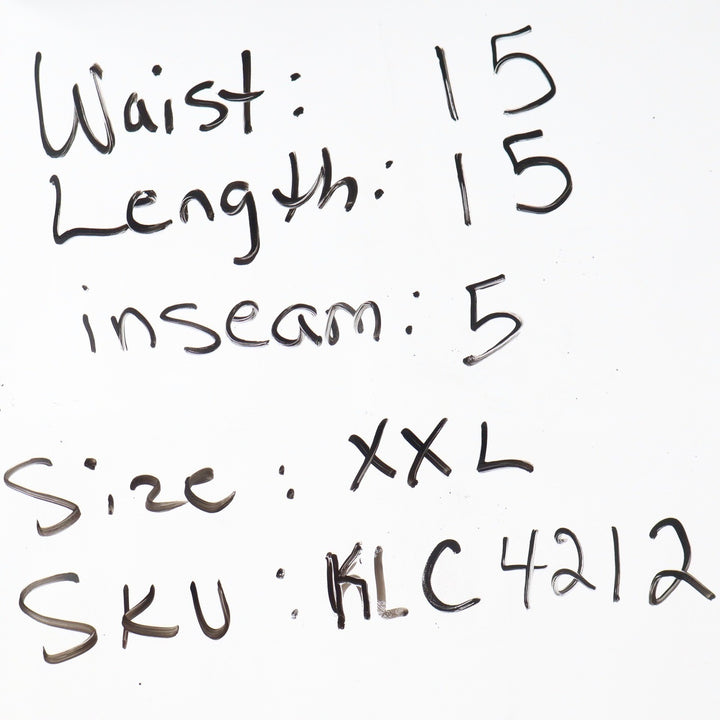 Waist: 15
Length: 15
inseam: 5
Size: XXL
SKU: KLC4212